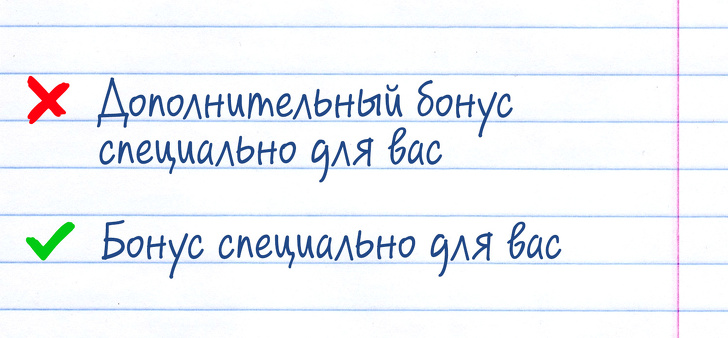 Дополнительный бонус
специально для вас
Бонус специально для вас